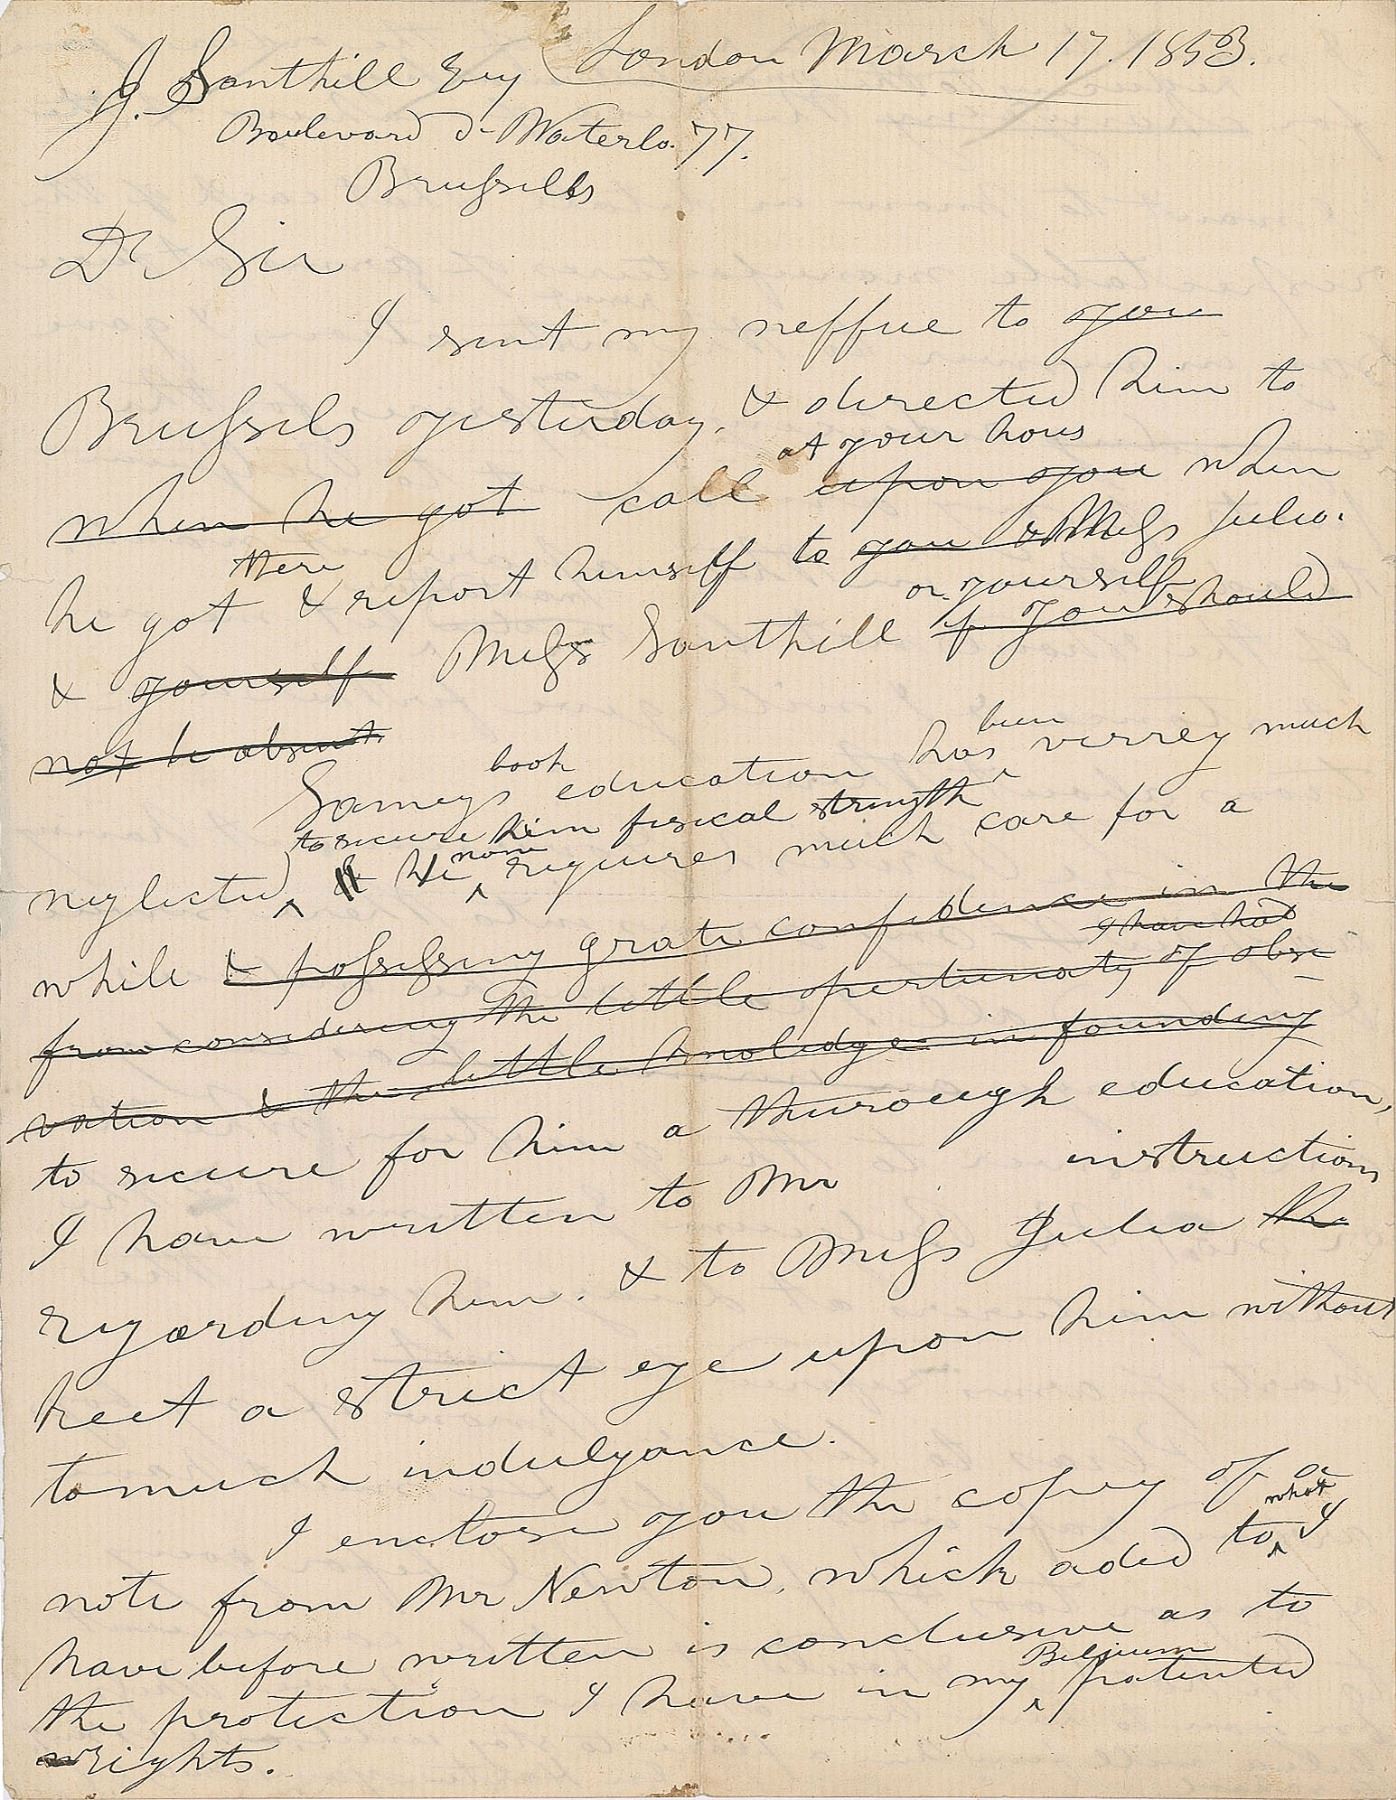 London March 17. 1853.
J. Santhill Esq
Boulevard d Waterlo. 77.
Brussills
Dr Sir
I sent my neffue to you
Brussils yesterday, & directed him to
at your hous
when he got call upon you when
there
he got & report himself to you & Miss Julia.
or yourself
& yourself Miss Santhill if you should
not be absent
book been
Sameys education has verrey much
to secure him fisical strength
now
neglected, & he requires much care for a
while & possessing grate confidence in the
I have had
from considering the little opertunaty of obse
vation & the little knoledge in founding
to secure for him a thurough education,
I have written to Mr instructions
regarding him. & to Miss Julia the
keet a strict eye upon him without
to much indulgance.
I enclose you the copy of a
what
note from Mr Newton, which aded to I
have before written is conclusive as to
Belgium
the protection I have in my patented
rights.